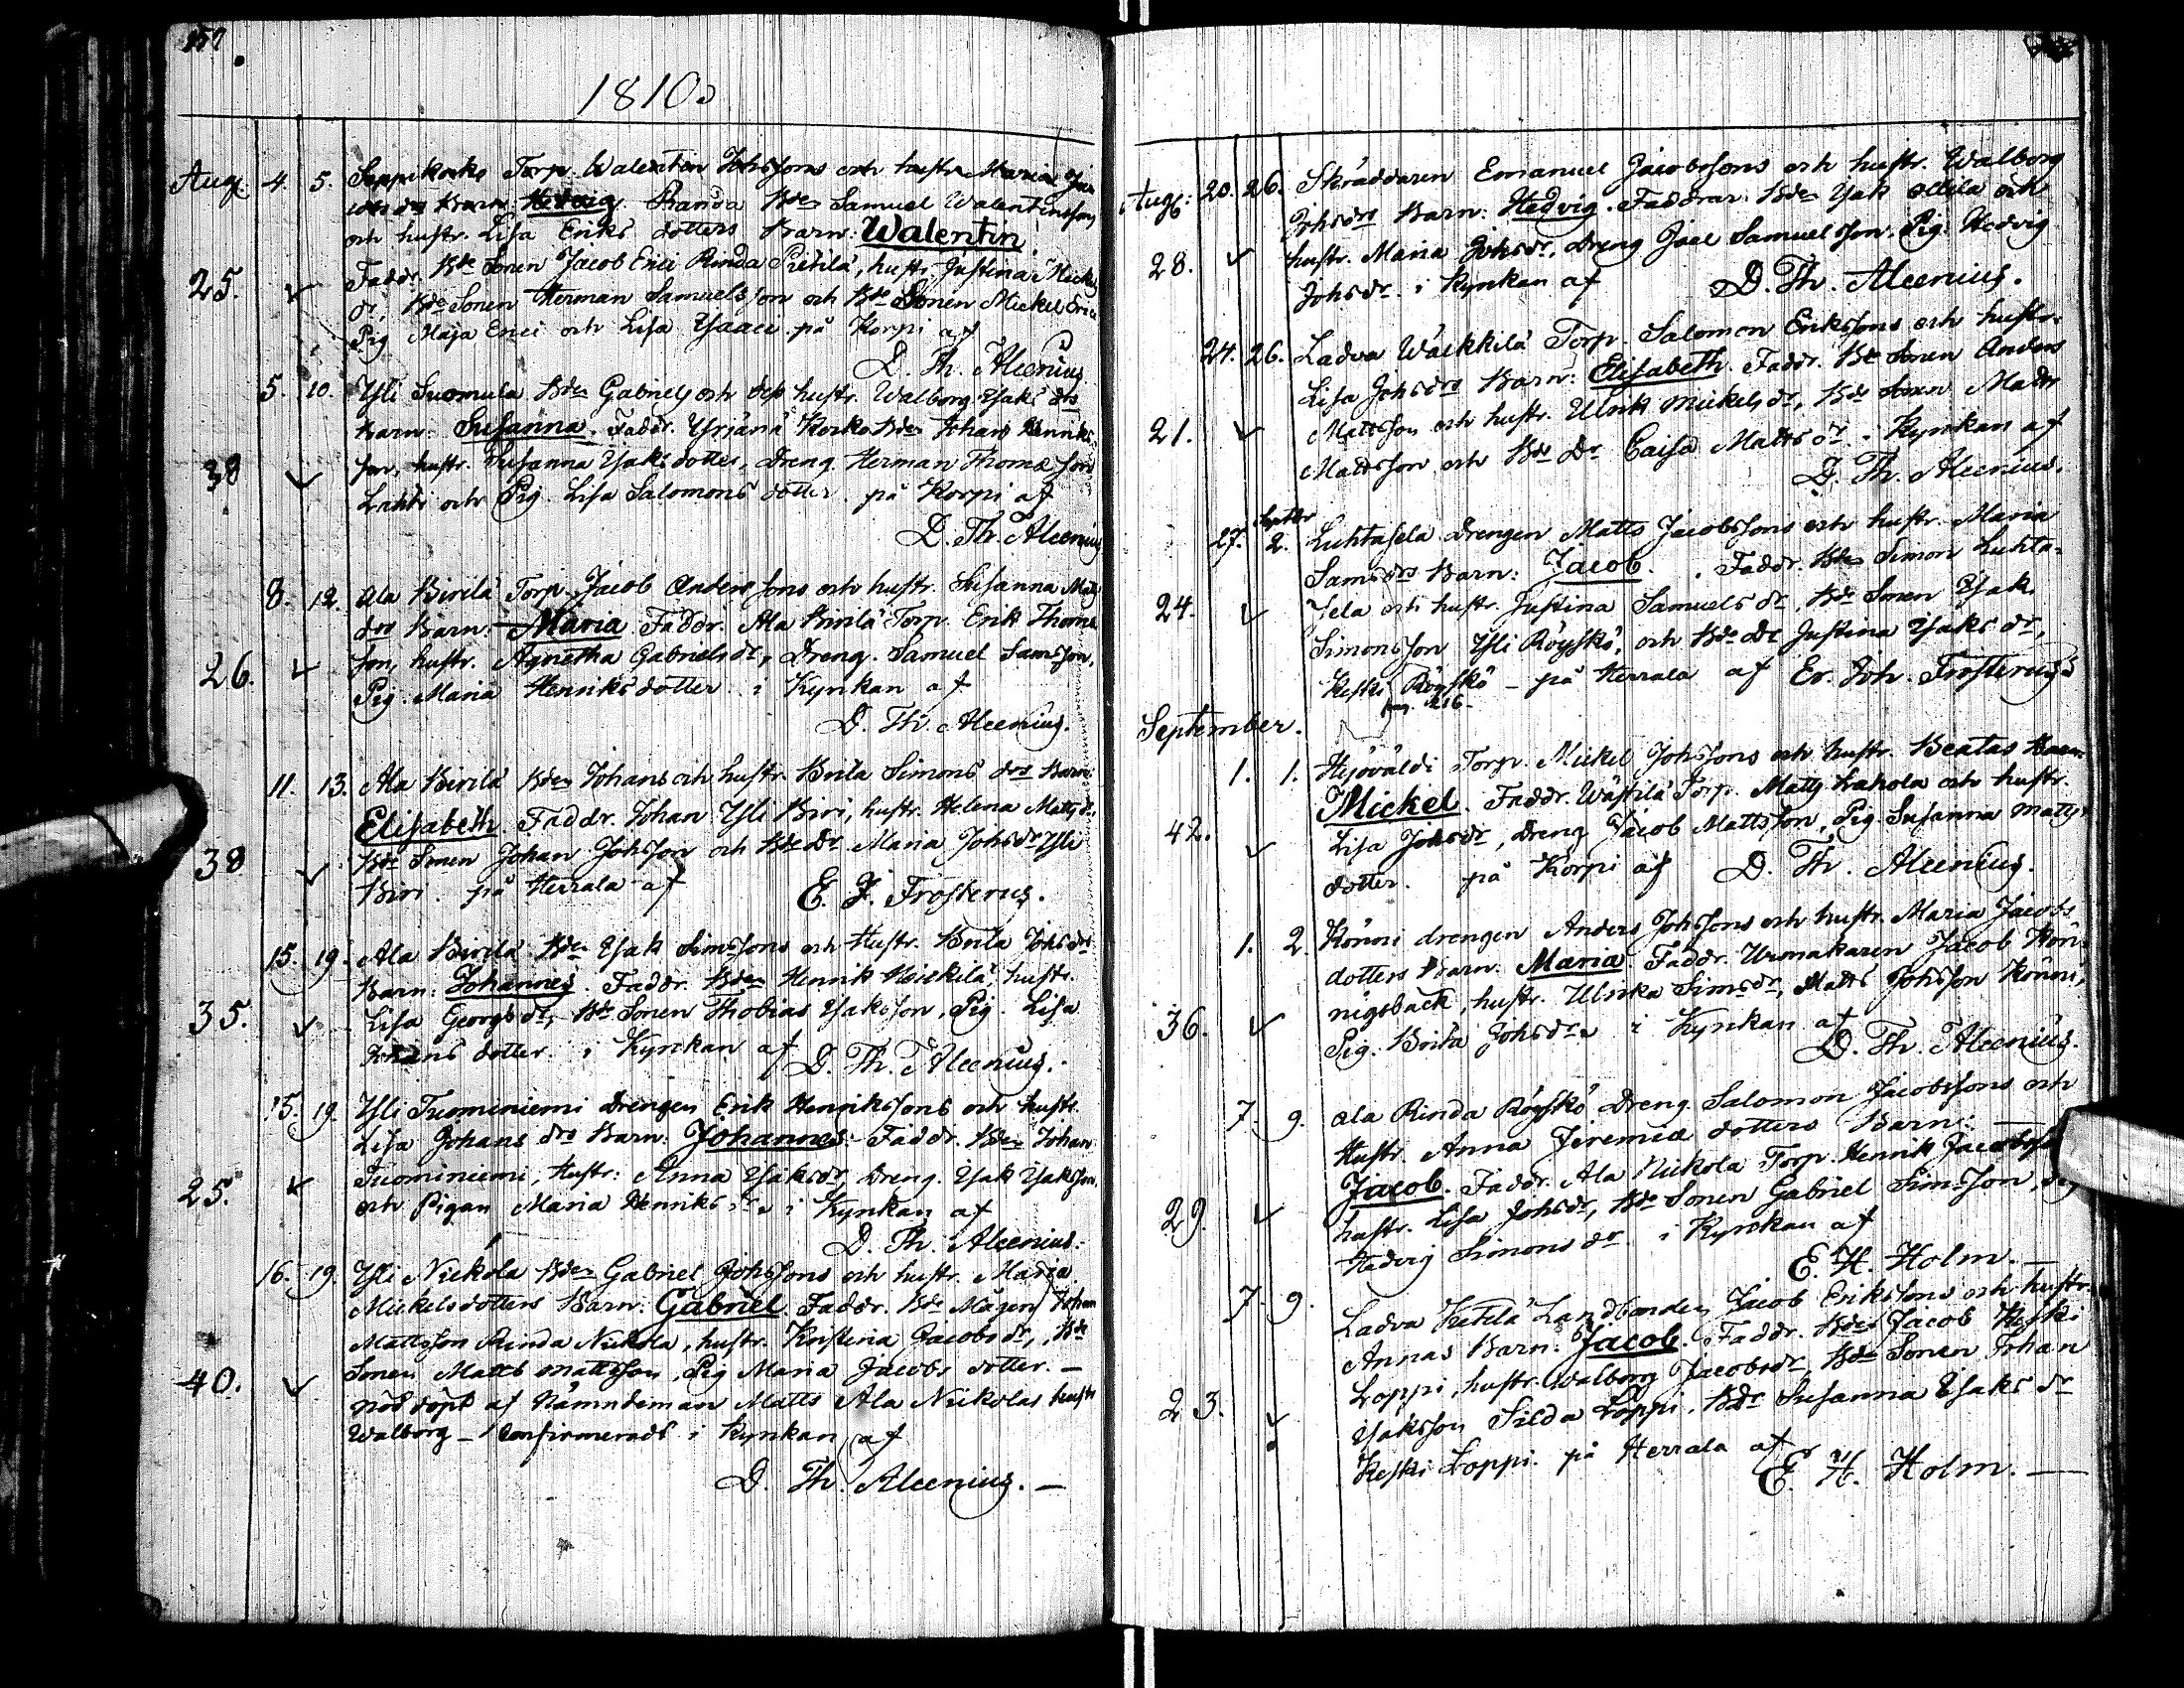 157
1810
Aug. 4. 5. Seppikorke Torp. Walentin Johssons och hustr. Maria
Barn: Hedvig. Randa Bdn Samuel Walentinsson
och hustr. Lisa Eriks dotters Barn: Walentin.
25. Faddr. Bde Sonen Jacob Erici Rinda Pietilä, hustr. Justina Mickels
dr, Bde Sonen Herman Samuelsson och Bde Sonen Mickel Erici
Pig Maja Erici och Lisa Ysaaci på Korpi af
D. Th. Alcenius
5. 10. Yli Suomula Bdn Gabriels och dess hustr. Walborg Ysaks drs
Barn: Susanna. Faddr. Yrjänä Korke Bdn Johan Henriks
38 son, hustr. Susanna Ysaks dotter, Dreng. Herman Thomæ son
Lahti och Pig. Lisa Salomons dotter. på Korpi af
D. Th. Alcenius
8. 12. Ala Birilä Torp. Jacob Anderssons och hustr. Susanna Matts
drs Barn: Maria. Faddr. Ala Birilä Torp. Erik Thomæ
26. son, hustr. Agnetha Gabriels dr, Dreng. Samuel Samsson,
Pig. Maria Henriks dotter i Kyrkan af
D. Th. Alcenius.
11. 13. Ala Birilä Bdn Johans och hustr. Brita Simons drs Barn:
Elisabeth. Faddr. Johan Yli Biri, hustr. Helena Matts dr.
38 Bde Sonen Johan Johsson och Bde Dr. Maria Johsdr Yli
Biri. på Herrala af E. J. Frosterus.
15. 19. Ala Birilä Bdn Ysak Simssons och Hustr. Brita Johsdrs
Barn: Johannes. Faddr. Bdn Henrik Heickilä, hustr.
35. Lisa Georgs dr, Bde Sonen Thobias Ysaksson, Pig. Lisa
Johans dotter i Kyrkan af D. Th. Alcenius.
15. 19. Yli Tuominiemi Drengen Erik Henrikssons och hustr.
Lisa Johans drs Barn: Johannes. Faddr. Bdn Johan
25. Tuominiemi, Hustr: Anna Ysaksdr, Dreng. Ysak Ysaksson,
och Pigan Maria Henriks dr i Kyrkan af
D. Th. Alcenius.
16. 19. Yli Nickola Bdn Gabriel Johssons och hustr. Maria
Mickelsdotters Barn: Gabriel. Faddr. Bde Mågen Johan
Mattsson Rinda Nickola, hustr. Kristina Jacobs dr, Bde
40. Sonen Matts Mattsson, Pig Maria Jacobs dotter. —
nöddöpt af Nämndeman Matts Ala Nickolas hustr
Walborg — Confirmerads i Kyrkan af
D. Th. Alcenius. —
Aug: 20. 26. Skräddaren Emanuel Jacobssons och hustr. Walborg
Johsdrs Barn: Hedvig. Faddrar: Bdn Ysak och
28. hustr. Maria Johsdr, Dreng Joel Samuelsson. Pig. Hedvig
Johsdr i Kyrkan af D. Th. Alcenius.
24. 26. Ladva Wäckkilä Torp. Salomon Erikssons och hustr.
Lisa Johsdrs Barn: Elisabeth. Faddr. Bde Sonen Anders
21. Mattsson och hustr. Ulrik Mickels dr, Bde Sonen Matts
Mattsson och Bde Dr Caisa Matts dr i Kyrkan af
D. Th. Alcenius.
Septbr
27. 2. Luhtasela Drengen Matts Jacobssons och hustr. Maria
Samsdrs Barn: Jacob. Faddr. Bdn Simon Luhta-
24. sela och hustr. Justina Samuels dr, Bde Sonen Ysak
Simonsson Yli Röyskö, och Bde Dr Justina Ysaks dr,
Keski Röyskö — på Herrala af Er. Joh. Frosterus
September.
1. 1. Hyöväldi Torp. Mickel Johssons och hustr. Beatas Barn
Mickel. Faddr. Wästilä Torp. Matts Lahola och hustr.
42. Lisa Johsdr, Dreng Jacob Mattsson, Pig. Susanna Matts
dotter. på Korpi af D. Th. Alcenius.
1. 2. Könni drengen Anders Johssons och hustr. Maria Jacobs
dotters Barn: Maria. Faddr. Urmakaren Jacob Kön-
36. nigsbäck, hustr. Ulrika Simsdr, Matts Johsson Könni,
Pig. Brita Johsdr i Kyrkan af
D. Th. Alcenius.
7. 9. Ala Rinda Röyskö Dreng. Salomon Jacobssons och
Hustr. Anna Jeremiæ dotters Barn:
Jacob. Faddr. Ala Nickola Torp. Henrik Jacobsson
29. hustr. Lisa Johsdr, Bde Sonen Gabriel Simsson, Pig
Hedvig Simons dr i Kyrkan af
E. H. Holm. —
7. 9. Ladva Ketilä Landbonden Jacob Erikssons och hustr.
Annas Barn: Jacob. Faddr. Bdn Jacob Keski
23. Loppi, hustr. Walborg Jacobsdr, Bde Sonen Johan
Ysaksson Silda Loppi. Bdr Susanna Ysaks dr
Keski Loppi. på Herrala af
E. H. Holm. —